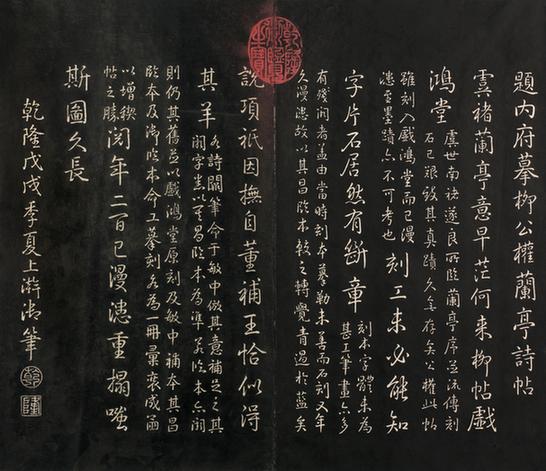 乾隆御覽之寶
題內府摹柳公權蘭亭詩帖
虞褚蘭亭意早茫何來柳帖戲
鴻堂
虞世南褚遂良所臨蘭亭序並流傳刻
石已艱致其真蹟久無存矣公權此帖
雖刻入戲鴻堂而已漫
漶至墨蹟亦不可考也
刻工未必能知
字片石居然有斷章
刻本字體未為
甚工筆畫亦多
有殘闕者蓋由當時刻本摹勒未善而石刻又年
久漫漶故以其昌臨本較之轉覺青過於藍矣
說項祇因撫自董補王恰似得
其羊
各詩闕筆命于敏中倣其意補之其
闕字悉以其昌臨本為準若臨本亦闕
則仍其舊並以戲鴻堂原刻及敏中補本其昌
臨本及御臨本命工摹刻各為一冊彙裘成函
以增秘
帖之勝
閱年二百已漫漶重搨嗤
斯圖久長
乾隆戊戌季夏上澣御筆
乾
隆